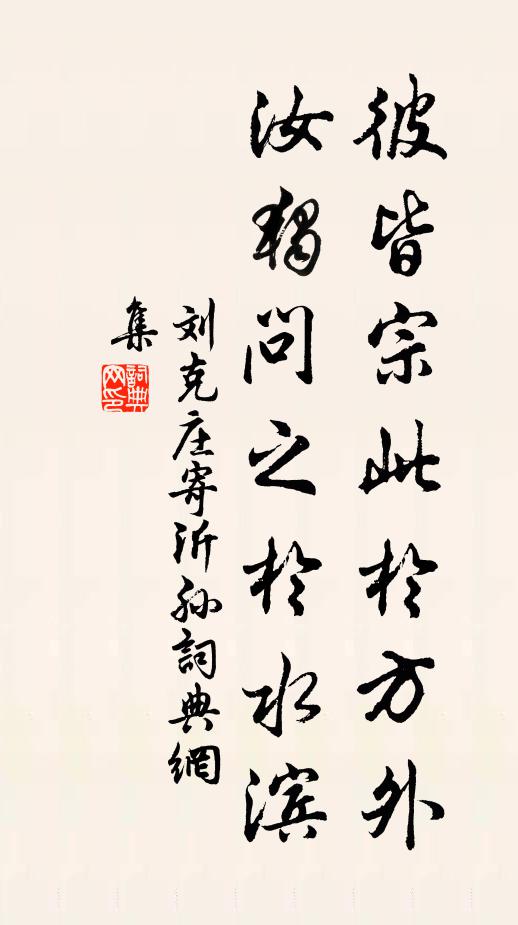 彼皆宗此於方外
汝独问之於水滨
刘克庄寄沂孙詞典網
集
詞典网印